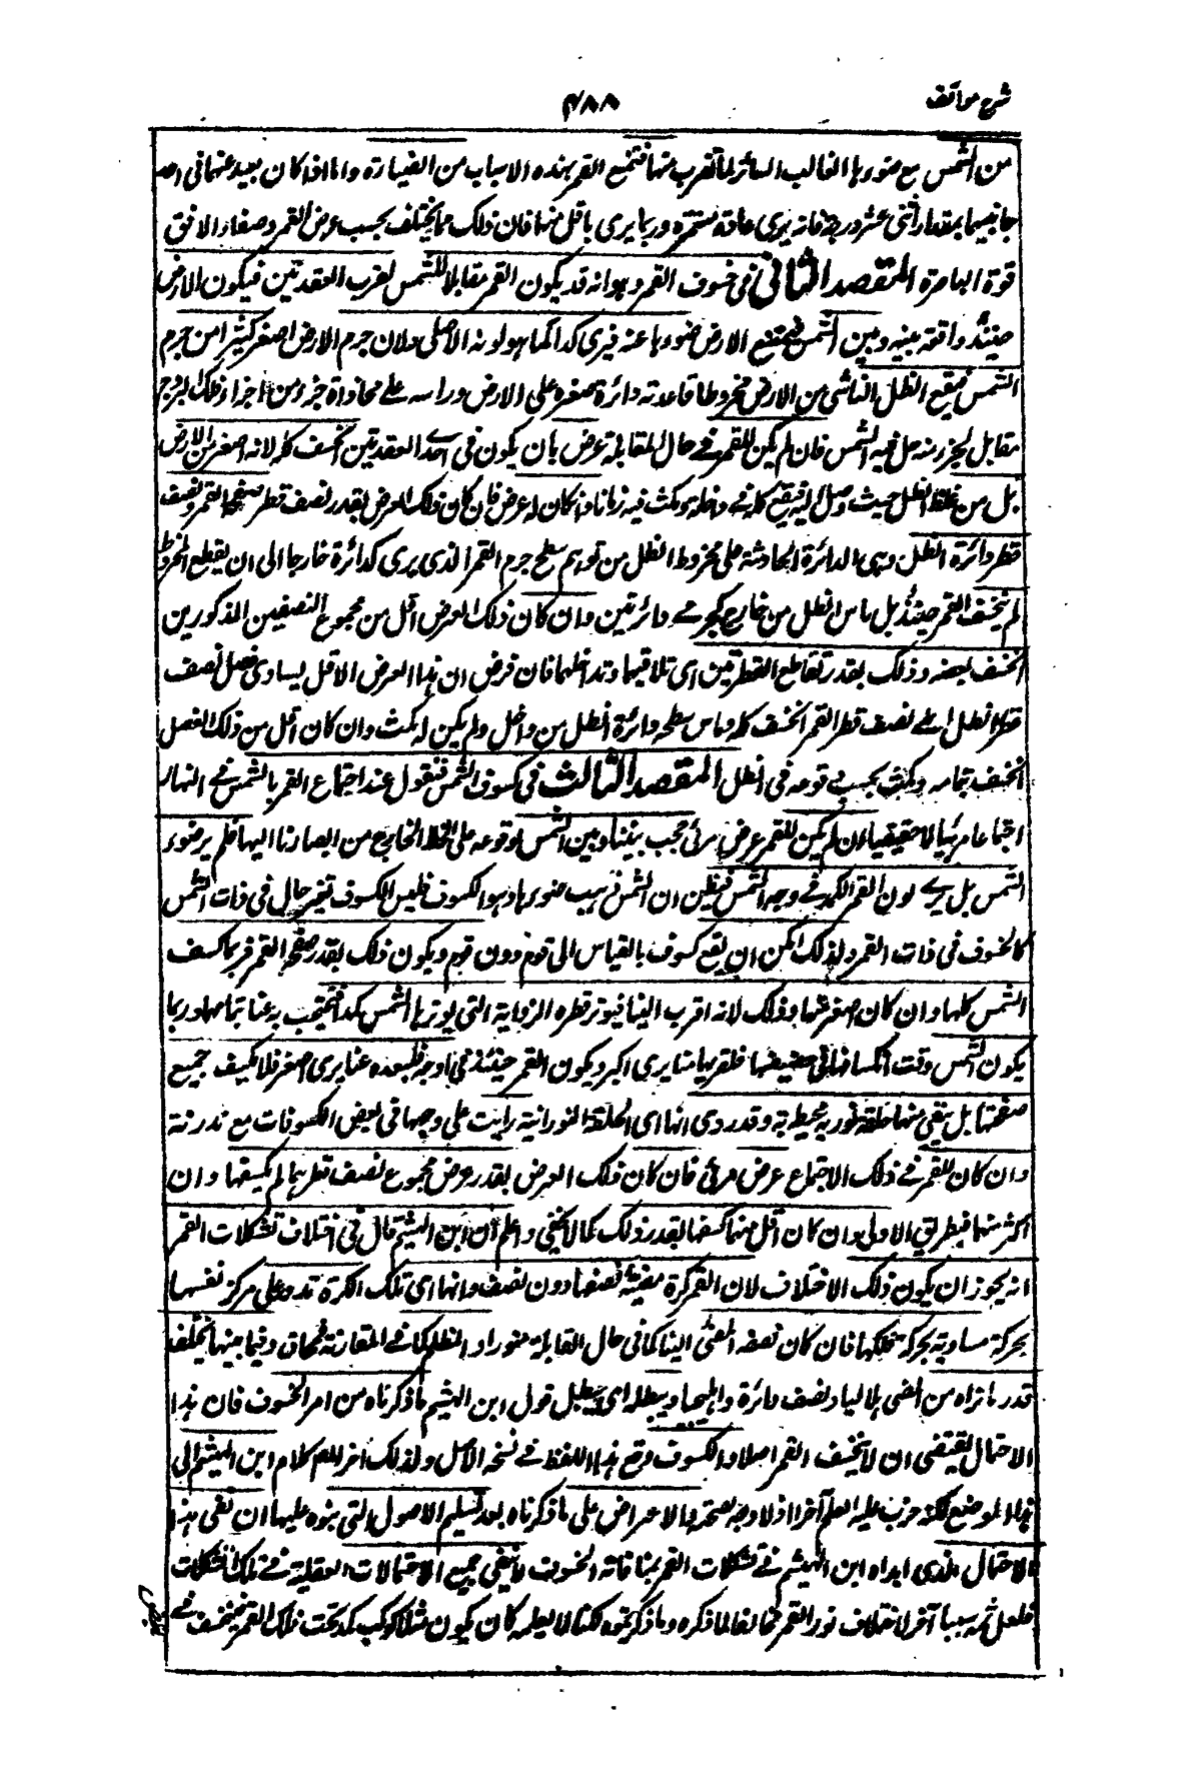 شرح مواقف
۴۸۸
من الشمس مع ضوءها الغالب الساتر لما تقرب منها فتمنع القمر بهذه الاسباب من الضيارة واما اذا كان بعيد عنها فى احد
جانبيها بمقدار اثنى عشر درجة فانه يرى عادة مستمرة وربما يرى باقل منها فان ذلك مما يختلف بحسب عرض القمر وصفاء الافق
قوة الباصرة المقصد الثانى فى خسوف القمر وهو انه قد يكون القمر مقابلا للشمس لقرب العقدتين فيكون الارض
حينئذ واقعة بينه وبين الشمس فيمتنع الارض ضوءها عنه فيرى كمدا كما هو لونه الاصلى ولان جرم الارض اصغر كثيرا من جرم
الشمس فيقع الظل الناشى من الارض مخروطا قاعدته دائرة صغيرة على الارض وراسه على محاذاة جزء من اجزاء فلك البروج
مقابل لجزء منه حل فيه الشمس فان لم يكن للقمر فى حال المقابلة عرض بان يكون فى احدى العقدتين انخسف كله لانه اصغر من الارض
بل من غلظ الظل حيث وصل اليه فيقع كله فى داخله ومكث فيه زمانا وان كان له عرض فان كان ذلك العرض بقدر نصف قطر صفحة القمر ونصف
قطر دائرة الظل وهى الدائرة الحادثة على مخروط الظل من توهم سطح جرم القمر الذى يرى كدائرة خارجا الى ان يقطع المخروط
لم ينخسف القمر حينئذ بل ماس الظل من خارج كحجرى دائرتين وان كان ذلك العرض اقل من مجموع النصفين المذكورين
انخسف بعضه وذلك بقدر تقاطع القطرين اى تلاقيهما وتداخلهما فان فرض ان هذا العرض الاقل يساوى فضل نصف
قطر الظل على نصف قطر القمر انخسف كله وماس سطحه دائرة الظل من داخل ولم يكن له مكث وان كان اقل من ذلك الفضل
انخسف بتمامه ومكث بحسب وقوعه فى الظل المقصد الثالث فى كسوف الشمس فنقول عند اجتماع القمر بالشمس فى النهار
اجتماعا مرئيا لا حقيقيا ان لم يكن للقمر عرض مرئى حجب بيننا وبين الشمس لوقوعه على الخط الخارج من ابصارنا اليها فلم ير ضوء
الشمس بل يرى لون القمر الكمد فى وجه الشمس فيظن ان الشمس ذهب ضوءها وهو الكسوف فليس الكسوف تغير حال فى ذات الشمس
كالخسوف فى ذات القمر ولذلك امكن ان يقع كسوف بالقياس الى قوم دون قوم ويكون ذلك بقدر صفحة القمر فربما كسف
الشمس كلها وان كان اصغر منها وذلك لانه اقرب الينا فيوتر قطره الزواية التى يوترها الشمس كله فيحجب به عنا بتمامها وربما
يكون الشمس وقت انكسافها فى حضيضها فلقربها منا يرى اكبر ويكون القمر حينئذ فى اوجه فلبعده عنا يرى اصغر فلا يكسف جميع
صفحتها بل يبقى منها حلقة نور به محيطة به وقد روى انها اى الحلقة النورانية رايت على وجهها فى بعض الكسوفات مع ندرته
وان كان للقمر فى ذلك الاجتماع عرض مرئى فان كان ذلك العرض بقدر عرض مجموع نصف قطريهما لم يكسفها وان
اكثر منهما فبطريق الاولى وان كان اقل منهما كسفها بقدر ذلك كما لا يخفى واعلم ان ابن الهيثم قال فى اختلاف تشكلات القمر
انه يجوز ان يكون ذلك الاختلاف لان القمر كرة مضيئة نصفها دون نصف وانها اى تلك الكرة تدور على مركز نفسها
بحركة مساوية بحركة فلكها فان كان نصفه المضئ الينا كما فى حال المقابلة فبدر او المظلم كما فى المقارنة فمحاق وفيما بينهما يختلف
قدر ما نراه من المضى هلاليا ونصف دائرة واهليجا ويبطله اى يبطل قول ابن الهيثم ما ذكرناه من امر الخسوف فان هذا
الاحتمال يقتضى ان لا ينخسف القمر اصلا والكسوف وقع هذا اللفظ فى نسخة الاصل ولذلك اخر المص كلام ابن الهيثم الى
هذا الموضع لكنه ضرب عليه القلم آخرا اذ لا وجه لصحته والاعتراض على ما ذكرناه بعد تسليم الاصول التى بنوه عليها ان نفى هذا
الاحتمال الذى ابداه ابن الهيثم فى تشكلات القمر بمنافاته الخسوف لا ينفى جميع الاحتمالات العقلية فى تلك التشكلات
فلعل ثمه سببا آخر لاختلاف نور القمر مخالفا لما ذكره وما ذكرتموه لكنا لا نعلمه كان يكون مثلا كوكب كمد تحت فلك القمر فينخسف به